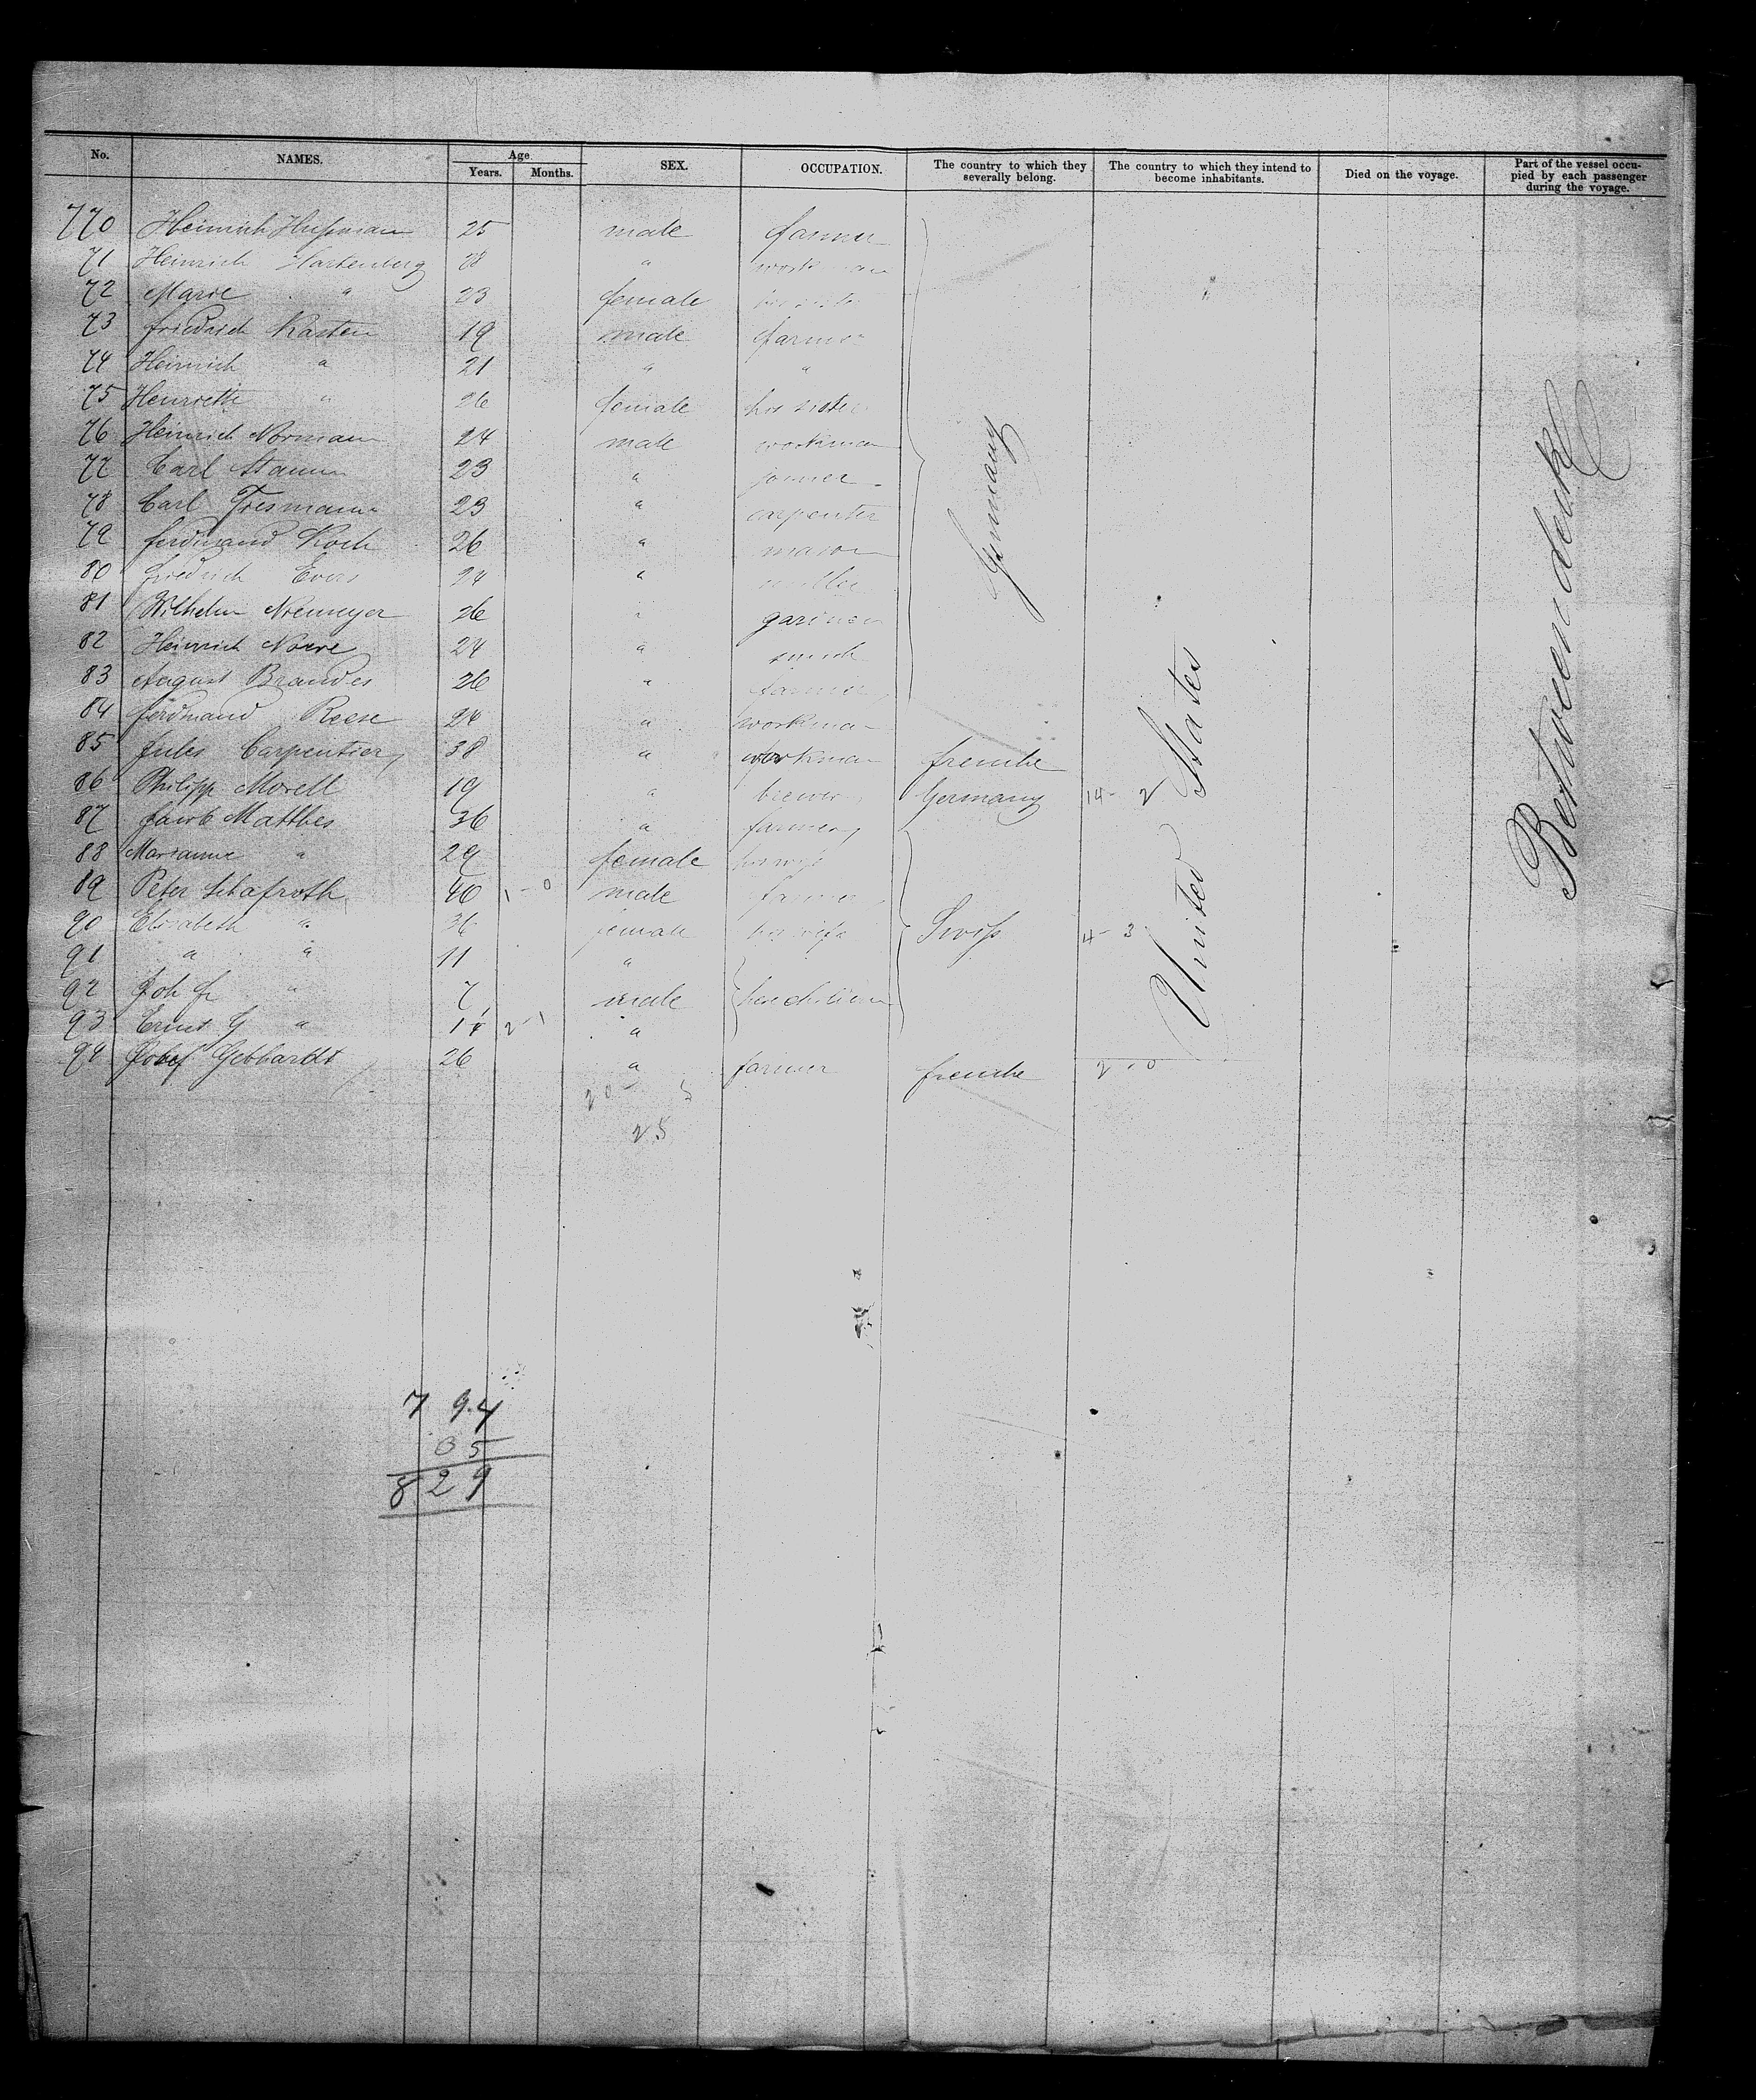 No. NAMES. Age. Years. Months. SEX. OCCUPATION. The country to which they severally belong. The country to which they intend to become inhabitants. Died on the voyage. Part of the vessel occupied by each passenger during the voyage.
770 Heinrich 25 male farmer
71 Heinrich Hartenberg 28 " workman
72 Marie " 23 female
73 Friedrich Kasten 19 male farmer
74 Heinrich " 21 " "
75 Henriette " 26 female his sister
76 Heinrich Normann 24 male workman
77 Carl Stamm 23 " joiner
78 Carl 23 " carpenter
79 Ferdinand Koch 26 " mason
80 Friedrich Evers 24 " miller
81 Wilhelm Niemeyer 26 "
82 Heinrich 24 " smith
83 August Brandes 26 " farmer
84 Ferdinand Reese 24 " workman
85 Jules Carpentier 38 " workman frenche
86 Philipp Morell 19 " brewer Germany 14 - 2
87 Jacob Matthes 36 " farmer
88 Marianne " 29 female his wife
89 Peter Schafroth 40 1 - 0 male farmer
90 Elisabeth " 36 female his wife Swiss 4 - 3
91 " " 11 "
92 Joh Fr " 7 male
93 Ernst G " 2 - 1 "
94 Josef Gebhardt 26 " farmer frenche 2 - 0
Germany
United States
Between deck
20 5
25
794
35
829